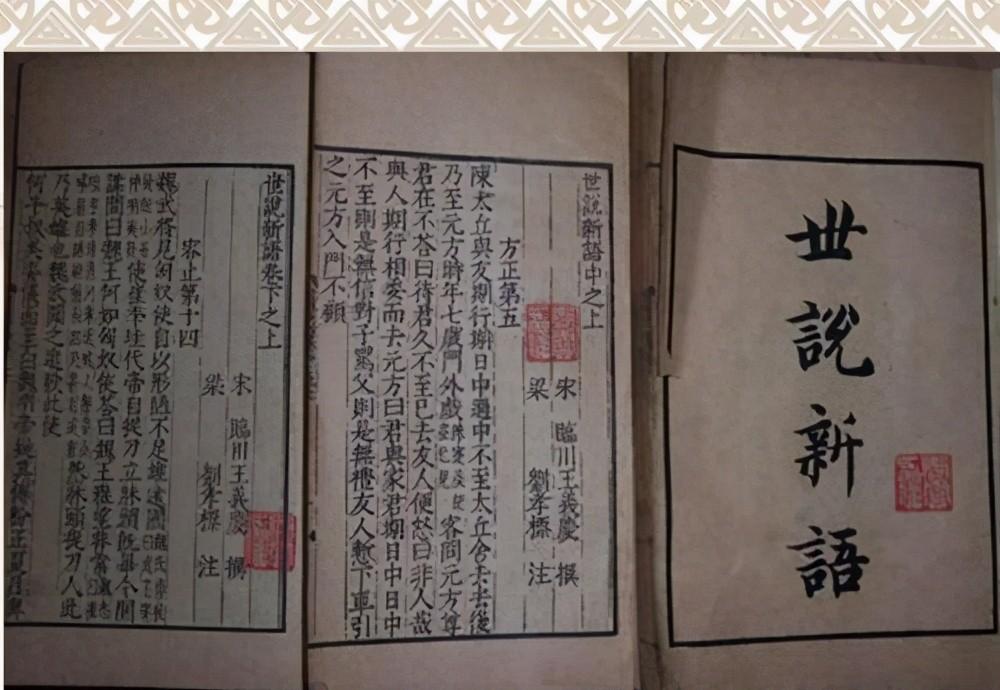 世說新語
世說新語中之上
宋 臨川王義慶 撰
梁 劉孝標 注
方正第五
陳太丘與友期行期日中過中不至太丘舍去去後
乃至元方時年七歲門外戲客問元方尊
君在不荅曰待君久不至已去友人便怒曰非人哉
與人期行相委而去元方曰君與家君期日中日中
不至則是無信對子罵父則是無禮友人慙下車引
之元方入門不顧
世說新語卷下之上
宋 臨川王義慶 撰
梁 劉孝標 注
容止第十四
魏武將見匈奴使自以形陋不足雄遠國
使崔季珪代帝自捉刀立牀頭既畢令間
諜問曰魏王何如匈奴使荅曰魏王雅望非常
然牀頭捉刀人此
乃英雄也魏武聞之追殺此使
何平叔美姿儀面至白魏明帝疑其傅粉正夏月與